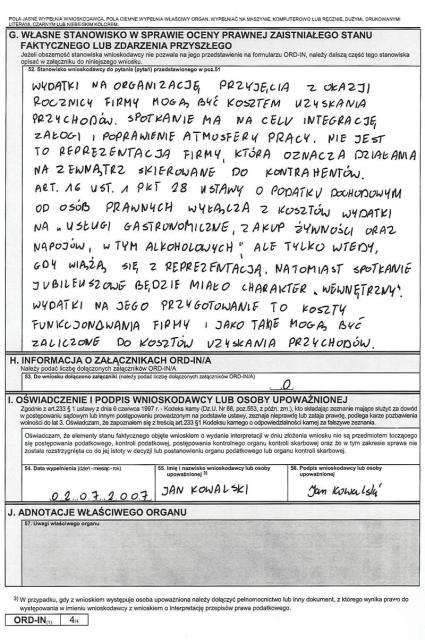 POLA JASNE WYPEŁNIA WNIOSKODAWCA, POLA CIEMNE WYPEŁNIA WŁAŚCIWY ORGAN. WYPEŁNIAĆ NA MASZYNIE, KOMPUTEROWO LUB RĘCZNIE, DUŻYMI, DRUKOWANYMI
LITERAMI, CZARNYM LUB NIEBIESKIM KOLOREM.
G. WŁASNE STANOWISKO W SPRAWIE OCENY PRAWNEJ ZAISTNIAŁEGO STANU
FAKTYCZNEGO LUB ZDARZENIA PRZYSZŁEGO
Jeżeli obszerność stanowiska wnioskodawcy nie pozwala na jego przedstawienie na formularzu ORD-IN, należy dalszą część tego stanowiska
opisać w załączniku do niniejszego wniosku.
52. Stanowisko wnioskodawcy do pytania (pytań) przedstawionego w poz.51
WYDATKI NA ORGANIZACJĘ PRZYJĘCIA Z OKAZJI
ROCZNICY FIRMY MOGĄ BYĆ KOSZTEM UZYSKANIA
PRZYCHODÓW. SPOTKANIE MA NA CELU INTEGRACJĘ
ZAŁOGI I POPRAWIENIE ATMOSFERY PRACY. NIE JEST
TO REPREZENTACJA FIRMY, KTÓRA OZNACZA DZIAŁANIA
NA ZEWNĄTRZ SKIEROWANE DO KONTRAHENTÓW.
ART. 16 UST. 1 PKT 28 USTAWY O PODATKU DOCHODOWYM
OD OSÓB PRAWNYCH WYŁĄCZA Z KOSZTÓW WYDATKI
NA „USŁUGI GASTRONOMICZNE, ZAKUP ŻYWNOŚCI ORAZ
NAPOJÓW, W TYM ALKOHOLOWYCH", ALE TYLKO WTEDY,
GDY WIĄŻĄ SIĘ Z REPREZENTACJĄ. NATOMIAST SPOTKANIE
JUBILEUSZOWE BĘDZIE MIAŁO CHARAKTER „WEWNĘTRZNY".
WYDATKI NA JEGO PRZYGOTOWANIE TO KOSZTY
FUNKCJONOWANIA FIRMY I JAKO TAKIE MOGĄ BYĆ
ZALICZONE DO KOSZTÓW UZYSKANIA PRZYCHODÓW.
H. INFORMACJA O ZAŁĄCZNIKACH ORD-IN/A
Należy podać liczbę dołączonych załączników ORD-IN/A
53. Do wniosku dołączono załączniki (należy podać liczbę dołączonych załączników ORD-IN/A)
0
I. OŚWIADCZENIE I PODPIS WNIOSKODAWCY LUB OSOBY UPOWAŻNIONEJ
Zgodnie z art.233 § 1 ustawy z dnia 6 czerwca 1997 r. - Kodeks karny (Dz.U. Nr 88, poz.553, z późn. zm.), kto składając zeznanie mające służyć za dowód
w postępowaniu sądowym lub innym postępowaniu prowadzonym na podstawie ustawy, zeznaje nieprawdę lub zataja prawdę, podlega karze pozbawienia
wolności do lat 3. Oświadczam, że zapoznałem się z treścią art.233 §1 Kodeksu karnego o odpowiedzialności karnej za fałszywe zeznania.
Oświadczam, że elementy stanu faktycznego objęte wnioskiem o wydanie interpretacji w dniu złożenia wniosku nie są przedmiotem toczącego
się postępowania podatkowego, kontroli podatkowej, postępowania kontrolnego organu kontroli skarbowej oraz że w tym zakresie sprawa nie
została rozstrzygnięta co do jej istoty w decyzji lub postanowieniu organu podatkowego lub organu kontroli skarbowej.
54. Data wypełnienia (dzień - miesiąc - rok)
55. Imię i nazwisko wnioskodawcy lub osoby
upoważnionej 3)
56. Podpis wnioskodawcy lub osoby
upoważnionej
02.07.2007
JAN KOWALSKI
Jan Kowalski
J. ADNOTACJE WŁAŚCIWEGO ORGANU
57. Uwagi właściwego organu
3) W przypadku, gdy z wnioskiem występuje osoba upoważniona należy dołączyć pełnomocnictwo lub inny dokument, z którego wynika prawo do
występowania w imieniu wnioskodawcy z wnioskiem o interpretację przepisów prawa podatkowego.
ORD-IN(1) 4/4